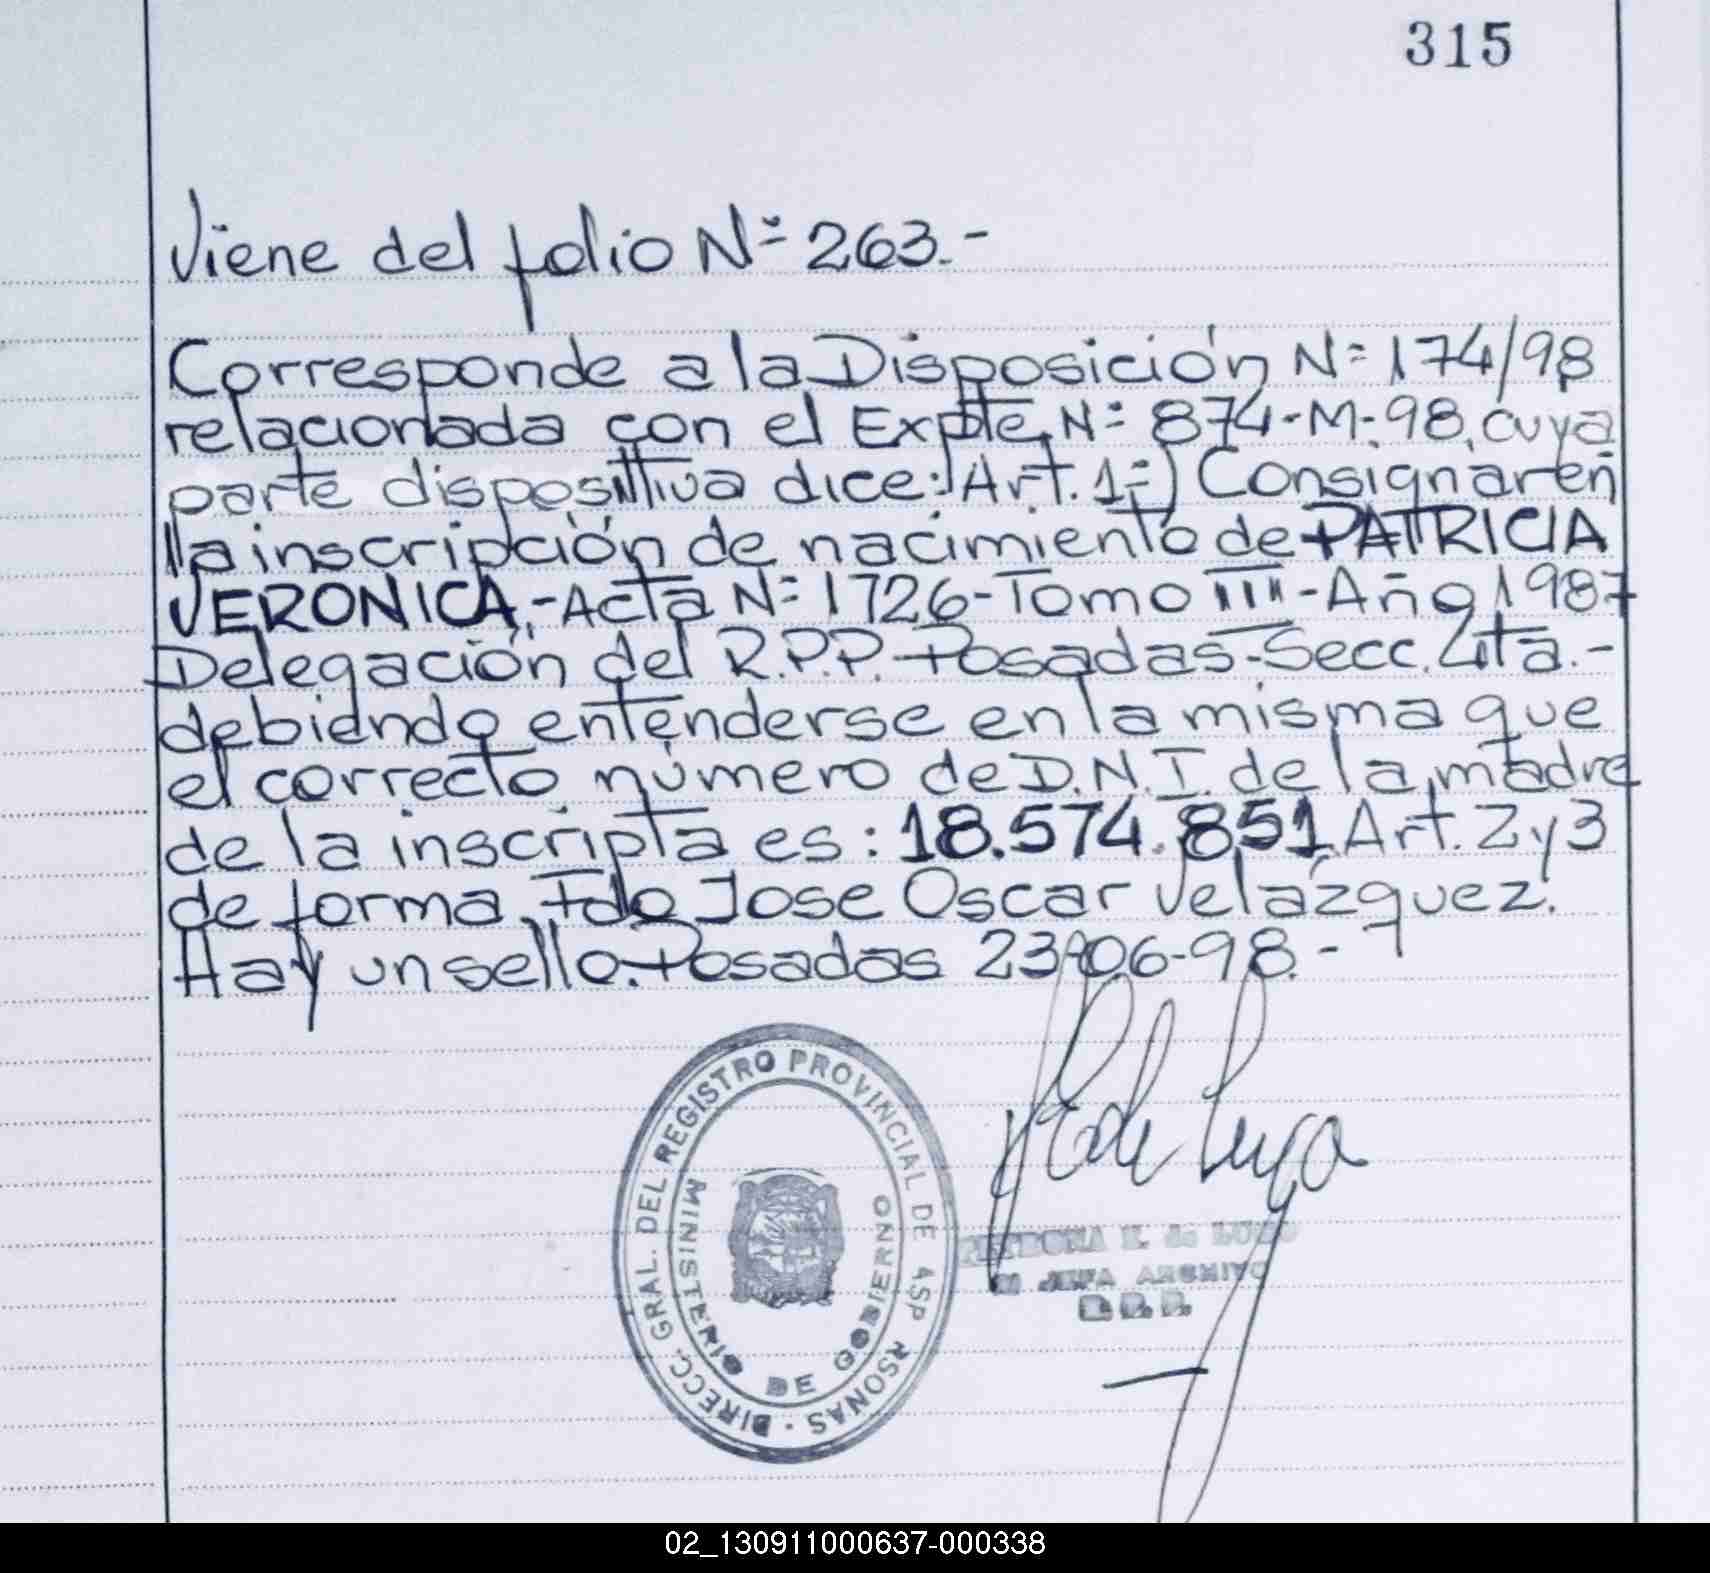 315
Viene del folio Nº 263.-
Corresponde a la Disposición Nº 174/98
relacionada con el Expte. Nº 874-M-98, cuya
parte dispositiva dice: Art. 1º) Consignar en
la inscripción de nacimiento de PATRICIA
VERONICA,- Acta Nº 1726- Tomo III- Año 1987
Delegación del R.P.P. Posadas-Secc. 4ta.-
debiendo entenderse en la misma que
el correcto número de D.N.I. de la madre
de la inscripta es: 18.574.851 Art. 2 y 3
de forma. Fdo Jose Oscar Velázquez.
Hay un sello. Posadas 23-06-98.-
DIRECC. GRAL. DEL REGISTRO PROVINCIAL DE ASP RSONAS
MINISTERIO DE GOBIERNO
E. de LUGO
JEFA ARCHIVO
02_130911000637-000338